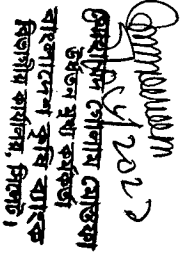 2023
গোলাম মোস্তফা
উর্ধ্বতন মুখ্য কর্মকর্তা
বাংলাদেশ কৃষি ব্যাংক
বিভাগীয় কার্যালয়, সিলেট।